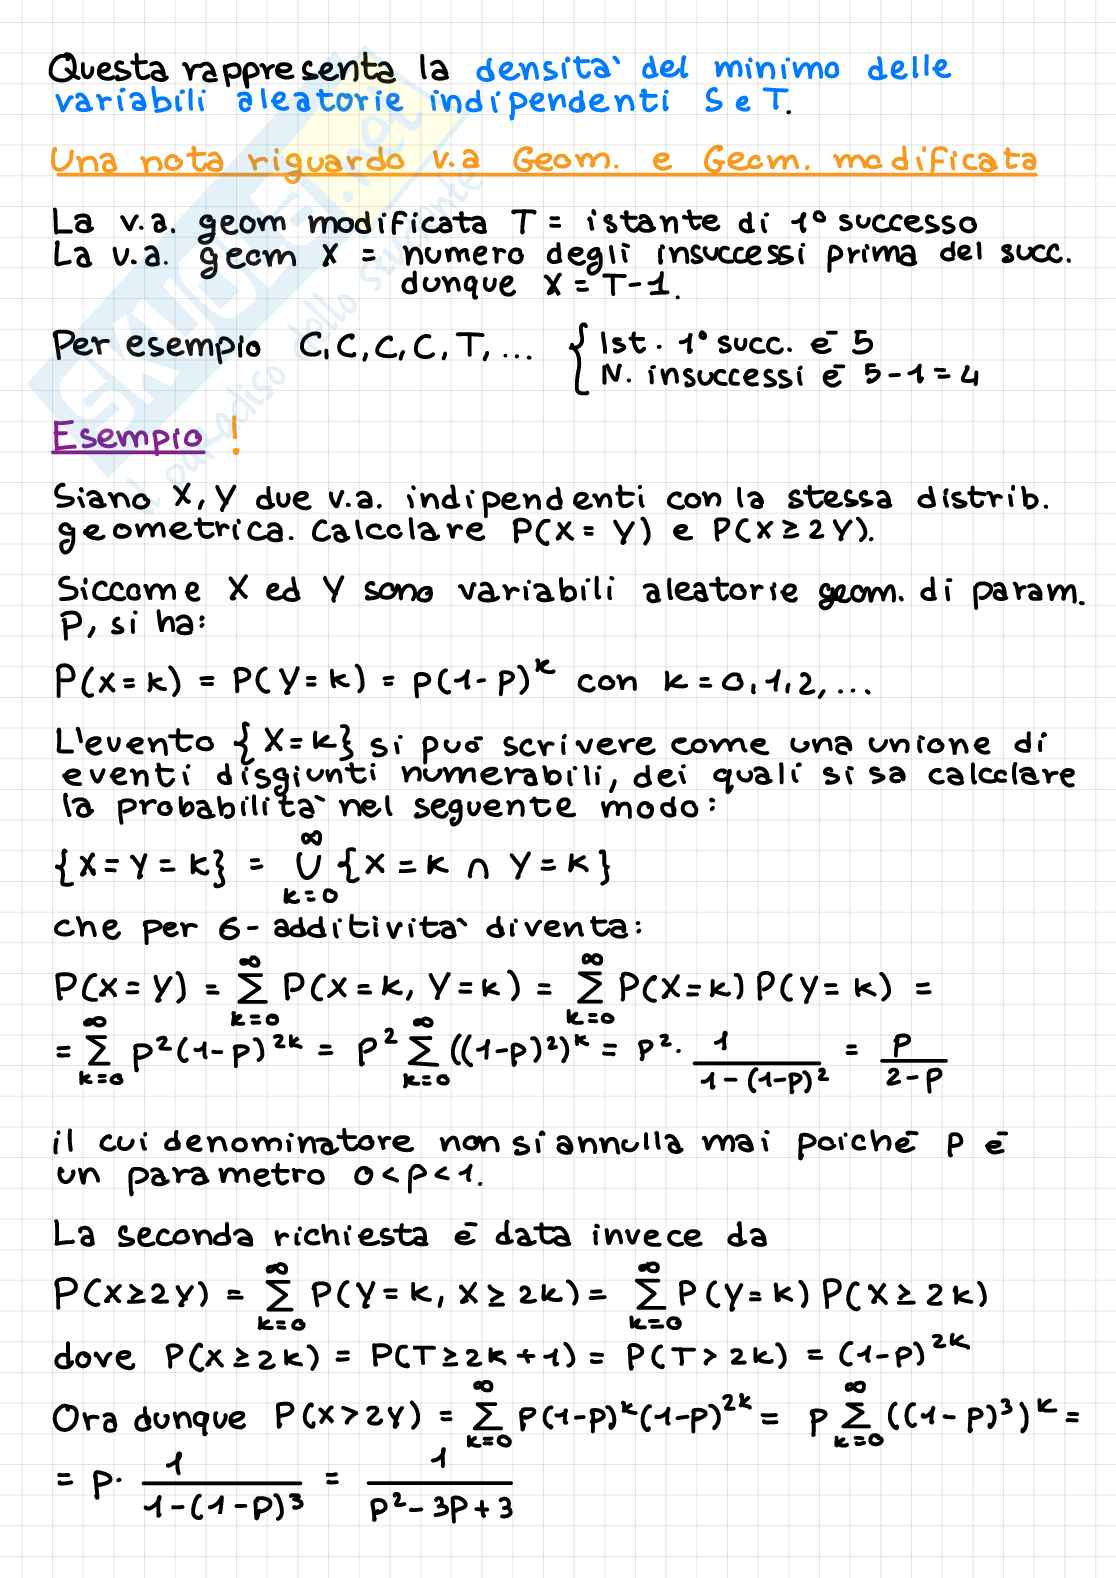 Questa rappresenta la densità del minimo delle
variabili aleatorie indipendenti S e T.
Una nota riguardo v.a Geom. e Geom. modificata
La v.a. geom modificata T = istante di 1° successo
La v.a. geom X = numero degli insuccessi prima del succ.
dunque X = T-1.
Per esempio C, C, C, C, T, ... { Ist. 1° succ. è 5
N. insuccessi è 5-1=4
Esempio !
Siano X, Y due v.a. indipendenti con la stessa distrib.
geometrica. Calcolare P(X = Y) e P(X ≥ 2Y).
Siccome X ed Y sono variabili aleatorie geom. di param.
P, si ha:
P(X=k) = P(Y=k) = p(1-p)^k con k = 0,1,2,...
L'evento {X=k} si può scrivere come una unione di
eventi disgiunti numerabili, dei quali si sa calcolare
la probabilità nel seguente modo:
{X=Y=k} = ∪_{k=0}^∞ {X=k ∩ Y=k}
che per 6-additività diventa:
P(X=Y) = Σ_{k=0}^∞ P(X=k, Y=k) = Σ_{k=0}^∞ P(X=k) P(Y=k) =
= Σ_{k=0}^∞ p²(1-p)^{2k} = p² Σ_{k=0}^∞ ((1-p)²)^k = p² · 1/(1-(1-p)²) = p/(2-p)
il cui denominatore non si annulla mai poiché p è
un parametro 0<p<1.
La seconda richiesta è data invece da
P(X≥2Y) = Σ_{k=0}^∞ P(Y=k, X≥2k) = Σ_{k=0}^∞ P(Y=k) P(X≥2k)
dove P(X≥2k) = P(T≥2k+1) = P(T>2k) = (1-p)^{2k}
Ora dunque P(X>2Y) = Σ_{k=0}^∞ p(1-p)^k(1-p)^{2k} = p Σ_{k=0}^∞ ((1-p)³)^k =
= p · 1/(1-(1-p)³) = 1/(p²-3p+3)
SKUOLA.net
il paradiso dello studente